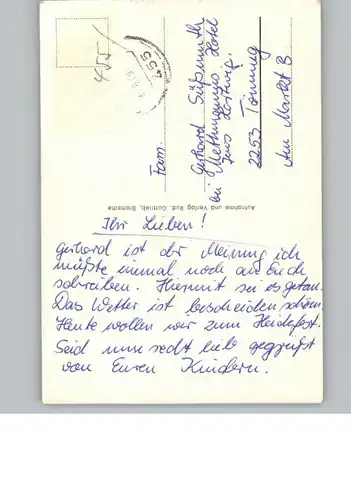 455
455
Fam.
Gerhard Süßmuth
bei Methmanns Hotel
2253 Tönning
Am Markt 8
Aufnahme und Verlag Rud. Gottlieb, Bramsche
Ihr Lieben!
Gerhard ist der Meinung ich
müßte einmal noch an Euch
schreiben. Hiermit sei es getan.
Das Wetter ist bescheiden schön.
Heute wollen wir zum Heidefest.
Seid nun recht lieb gegrüßt
von Euren Kindern.